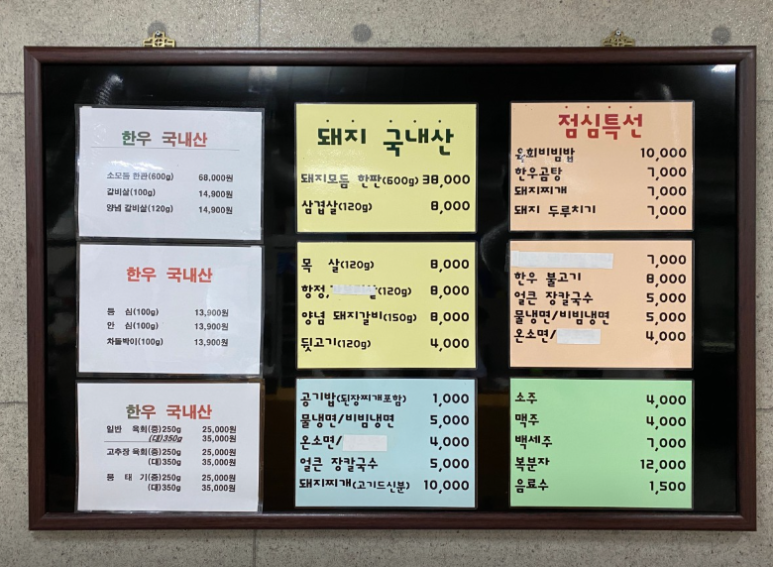 한우 국내산
소모듬 한판(600g) 68,000원
갈비살(100g) 14,900원
양념 갈비살(120g) 14,900원
한우 국내산
등 심(100g) 13,900원
안 심(100g) 13,900원
차돌박이(100g) 13,900원
한우 국내산
일반 육회(중)250g 25,000원
(대)350g 35,000원
고추장 육회(중)250g 25,000원
(대)350g 35,000원
뭉 태 기(중)250g 25,000원
(대)350g 35,000원
돼지 국내산
돼지모듬 한판(600g) 38,000
삼겹살(120g) 8,000
목 살(120g) 8,000
항정, (120g) 8,000
양념 돼지갈비(150g) 8,000
뒷고기(120g) 4,000
공기밥(된장찌개포함) 1,000
물냉면/비빔냉면 5,000
온소면/ 4,000
얼큰 장칼국수 5,000
돼지찌개(고기드신분) 10,000
점심특선
육회비빔밥 10,000
한우곰탕 7,000
돼지찌개 7,000
돼지 두루치기 7,000
7,000
한우 불고기 8,000
얼큰 장칼국수 5,000
물냉면/비빔냉면 5,000
온소면/ 4,000
소주 4,000
맥주 4,000
백세주 7,000
복분자 12,000
음료수 1,500